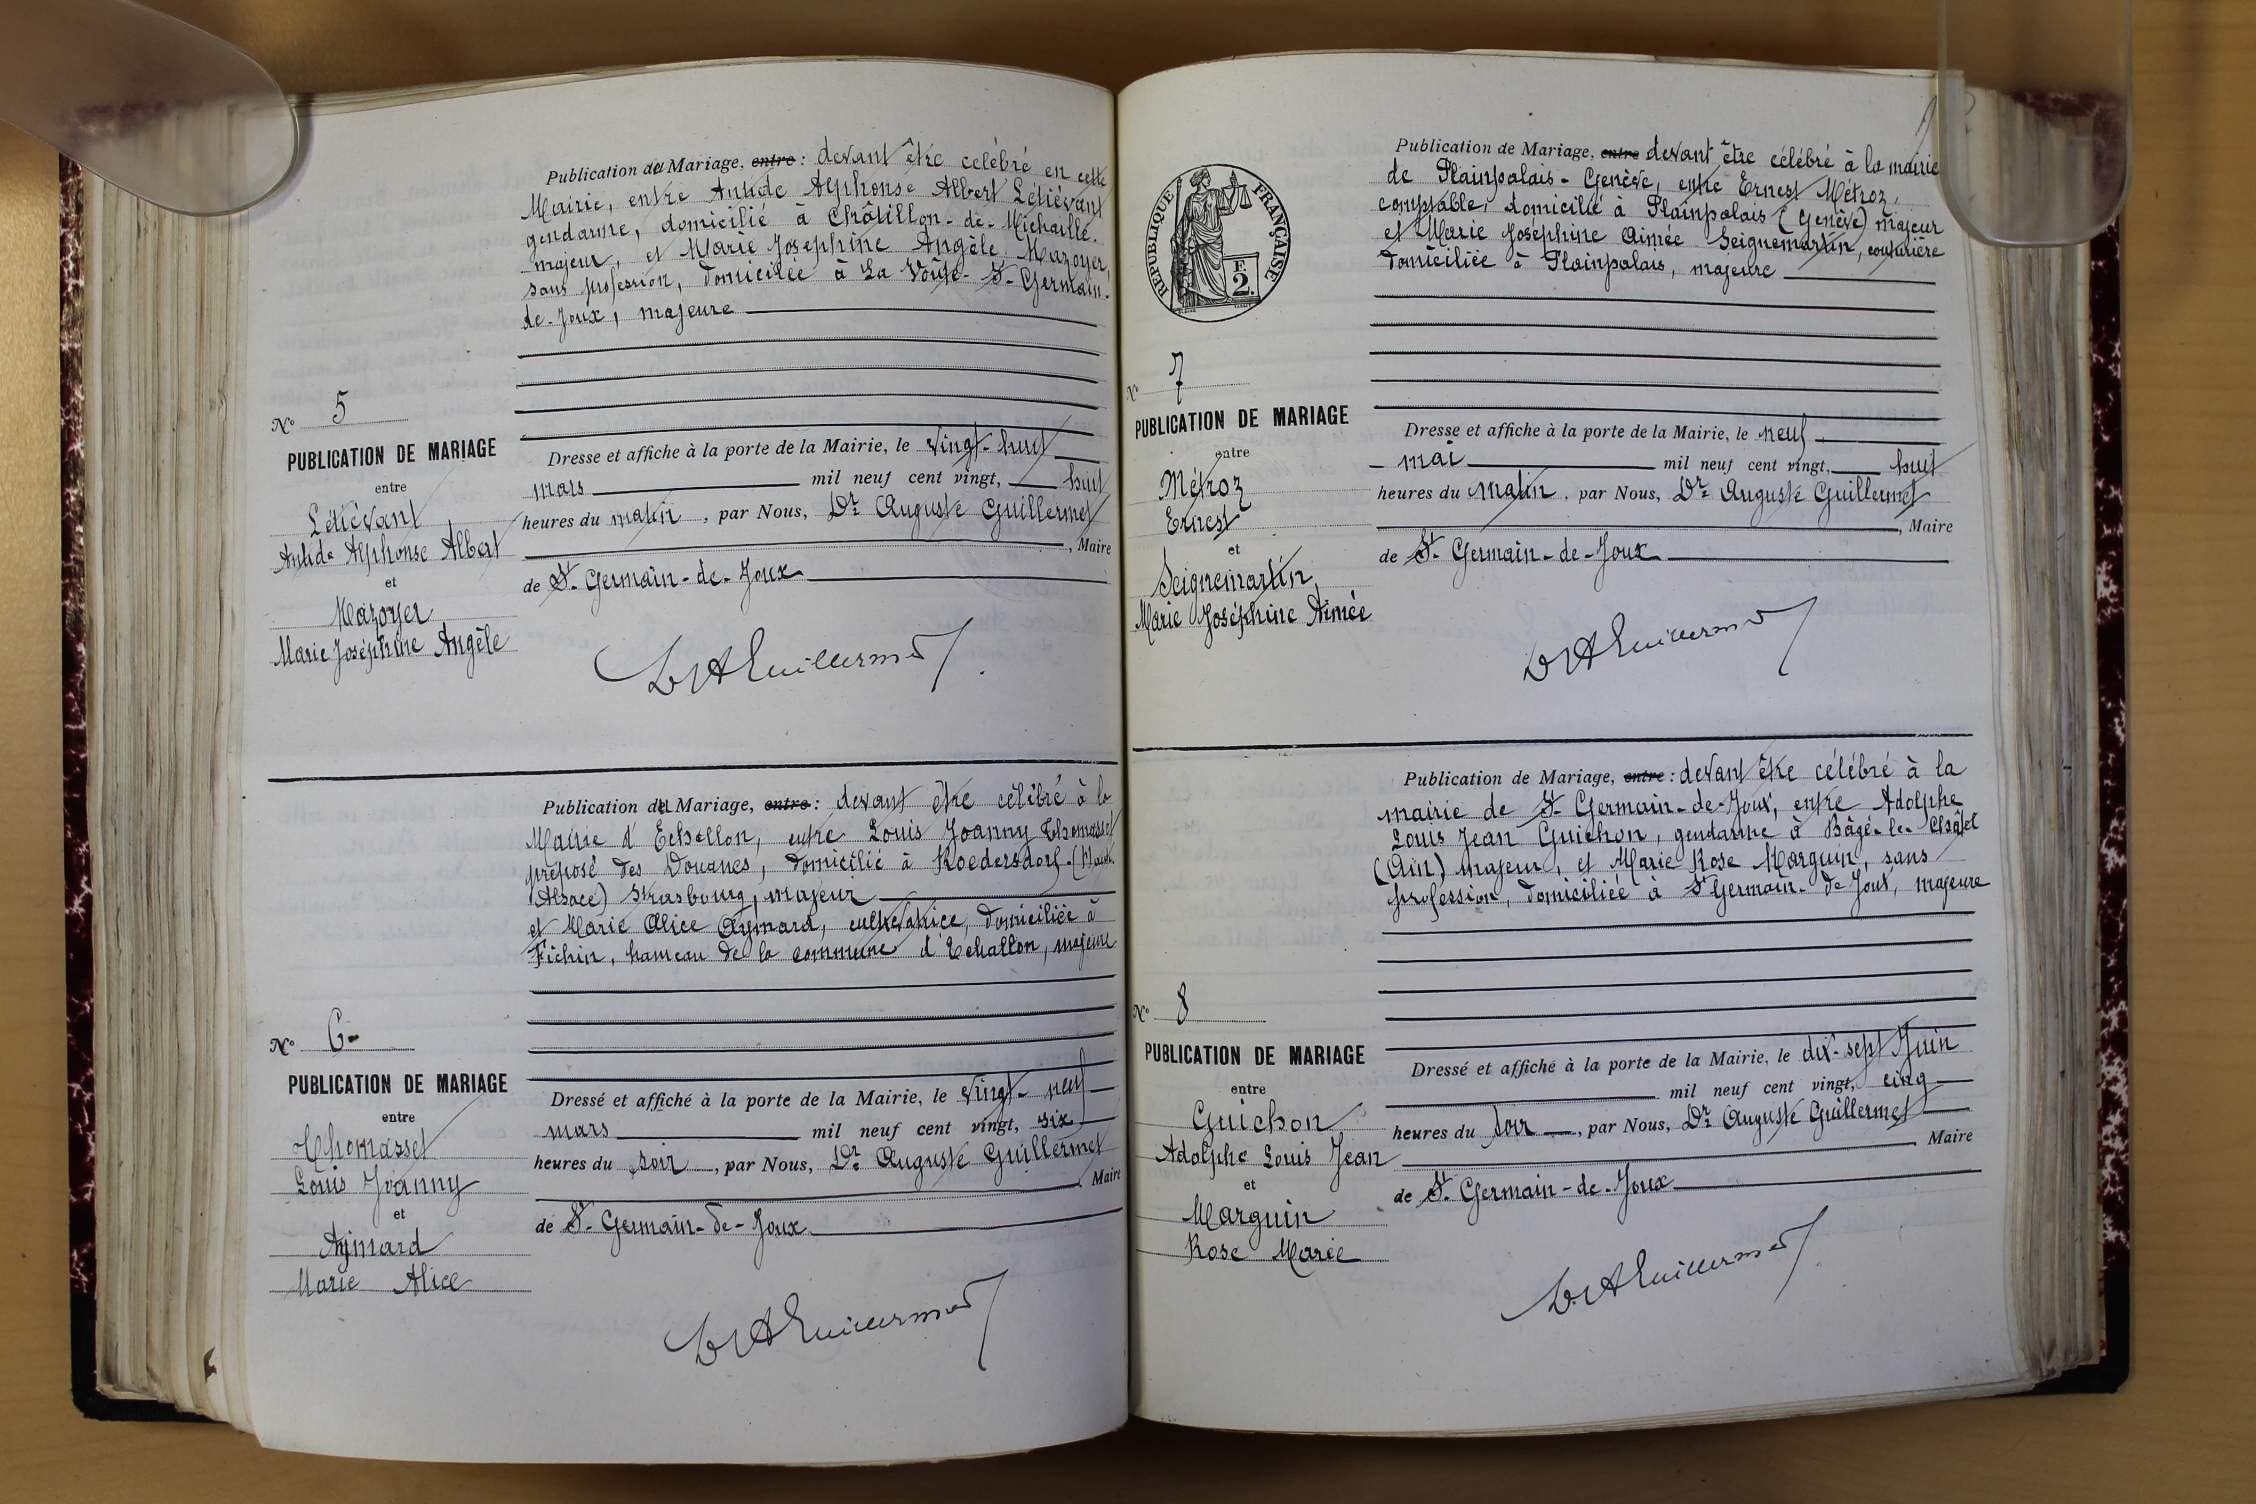 Publication de Mariage, entre : devant être célébré en cette
Mairie, entre Antide Alphonse Albert Létiévant
gendarme, domicilié à Châtillon-de-Michaille.
majeur, et Marie Josephine Angèle Mazoyer,
sans profession, domiciliée à La Voûte-St-Germain-
de-Joux, majeure
N° 5
PUBLICATION DE MARIAGE
entre
Létiévant
Antide Alphonse Albert
et
Mazoyer
Marie Joséphine Angèle
Dressé et affiché à la porte de la Mairie, le vingt-huit
mars mil neuf cent vingt, huit
heures du matin, par Nous, Dr Auguste Guillermet
, Maire
de St-Germain-de-Joux
Dr A Guillermet
Publication de Mariage, entre : devant être célébré à la
Mairie d'Echallon, entre Louis Joanny Thomasset
préposé des Douanes, domicilié à Roedersdorf (Haute
Alsace) Strasbourg, majeur
et Marie Alice Aymard, cultivatrice, domiciliée à
Fichin, hameau de la commune d'Echallon, majeure
N° 6
PUBLICATION DE MARIAGE
entre
Thomasset
Louis Joanny
et
Aymard
Marie Alice
Dressé et affiché à la porte de la Mairie, le vingt-neuf
mars mil neuf cent vingt, six
heures du soir, par Nous, Dr Auguste Guillermet
, Maire
de St-Germain-de-Joux
Dr A Guillermet
RÉPUBLIQUE FRANÇAISE
F.
2.
Publication de Mariage, entre devant être célébré à la mairie
de Plainpalais-Genève, entre Ernest Métroz,
comptable, domicilié à Plainpalais (Genève) majeur
et Marie Joséphine Aimée Seignemartin, couturière
domiciliée à Plainpalais, majeure
N° 7
PUBLICATION DE MARIAGE
entre
Métroz
Ernest
et
Seignemartin
Marie Joséphine Aimée
Dressé et affiché à la porte de la Mairie, le neuf
mai mil neuf cent vingt, huit
heures du matin, par Nous, Dr Auguste Guillermet
, Maire
de St-Germain-de-Joux
Dr A Guillermet
Publication de Mariage, entre : devant être célébré à la
mairie de St-Germain-de-Joux, entre Adolphe
Louis Jean Guichon, gendarme à Bâgé-le-Châtel
(Ain) majeur, et Marie Rose Marguin, sans
profession, domiciliée à St Germain-de Joux, majeure
N° 8
PUBLICATION DE MARIAGE
entre
Guichon
Adolphe Louis Jean
et
Marguin
Rose Marie
Dressé et affiché à la porte de la Mairie, le dix-sept Juin
mil neuf cent vingt, cinq
heures du soir, par Nous, Dr Auguste Guillermet
Maire
de St-Germain-de-Joux
Dr A Guillermet